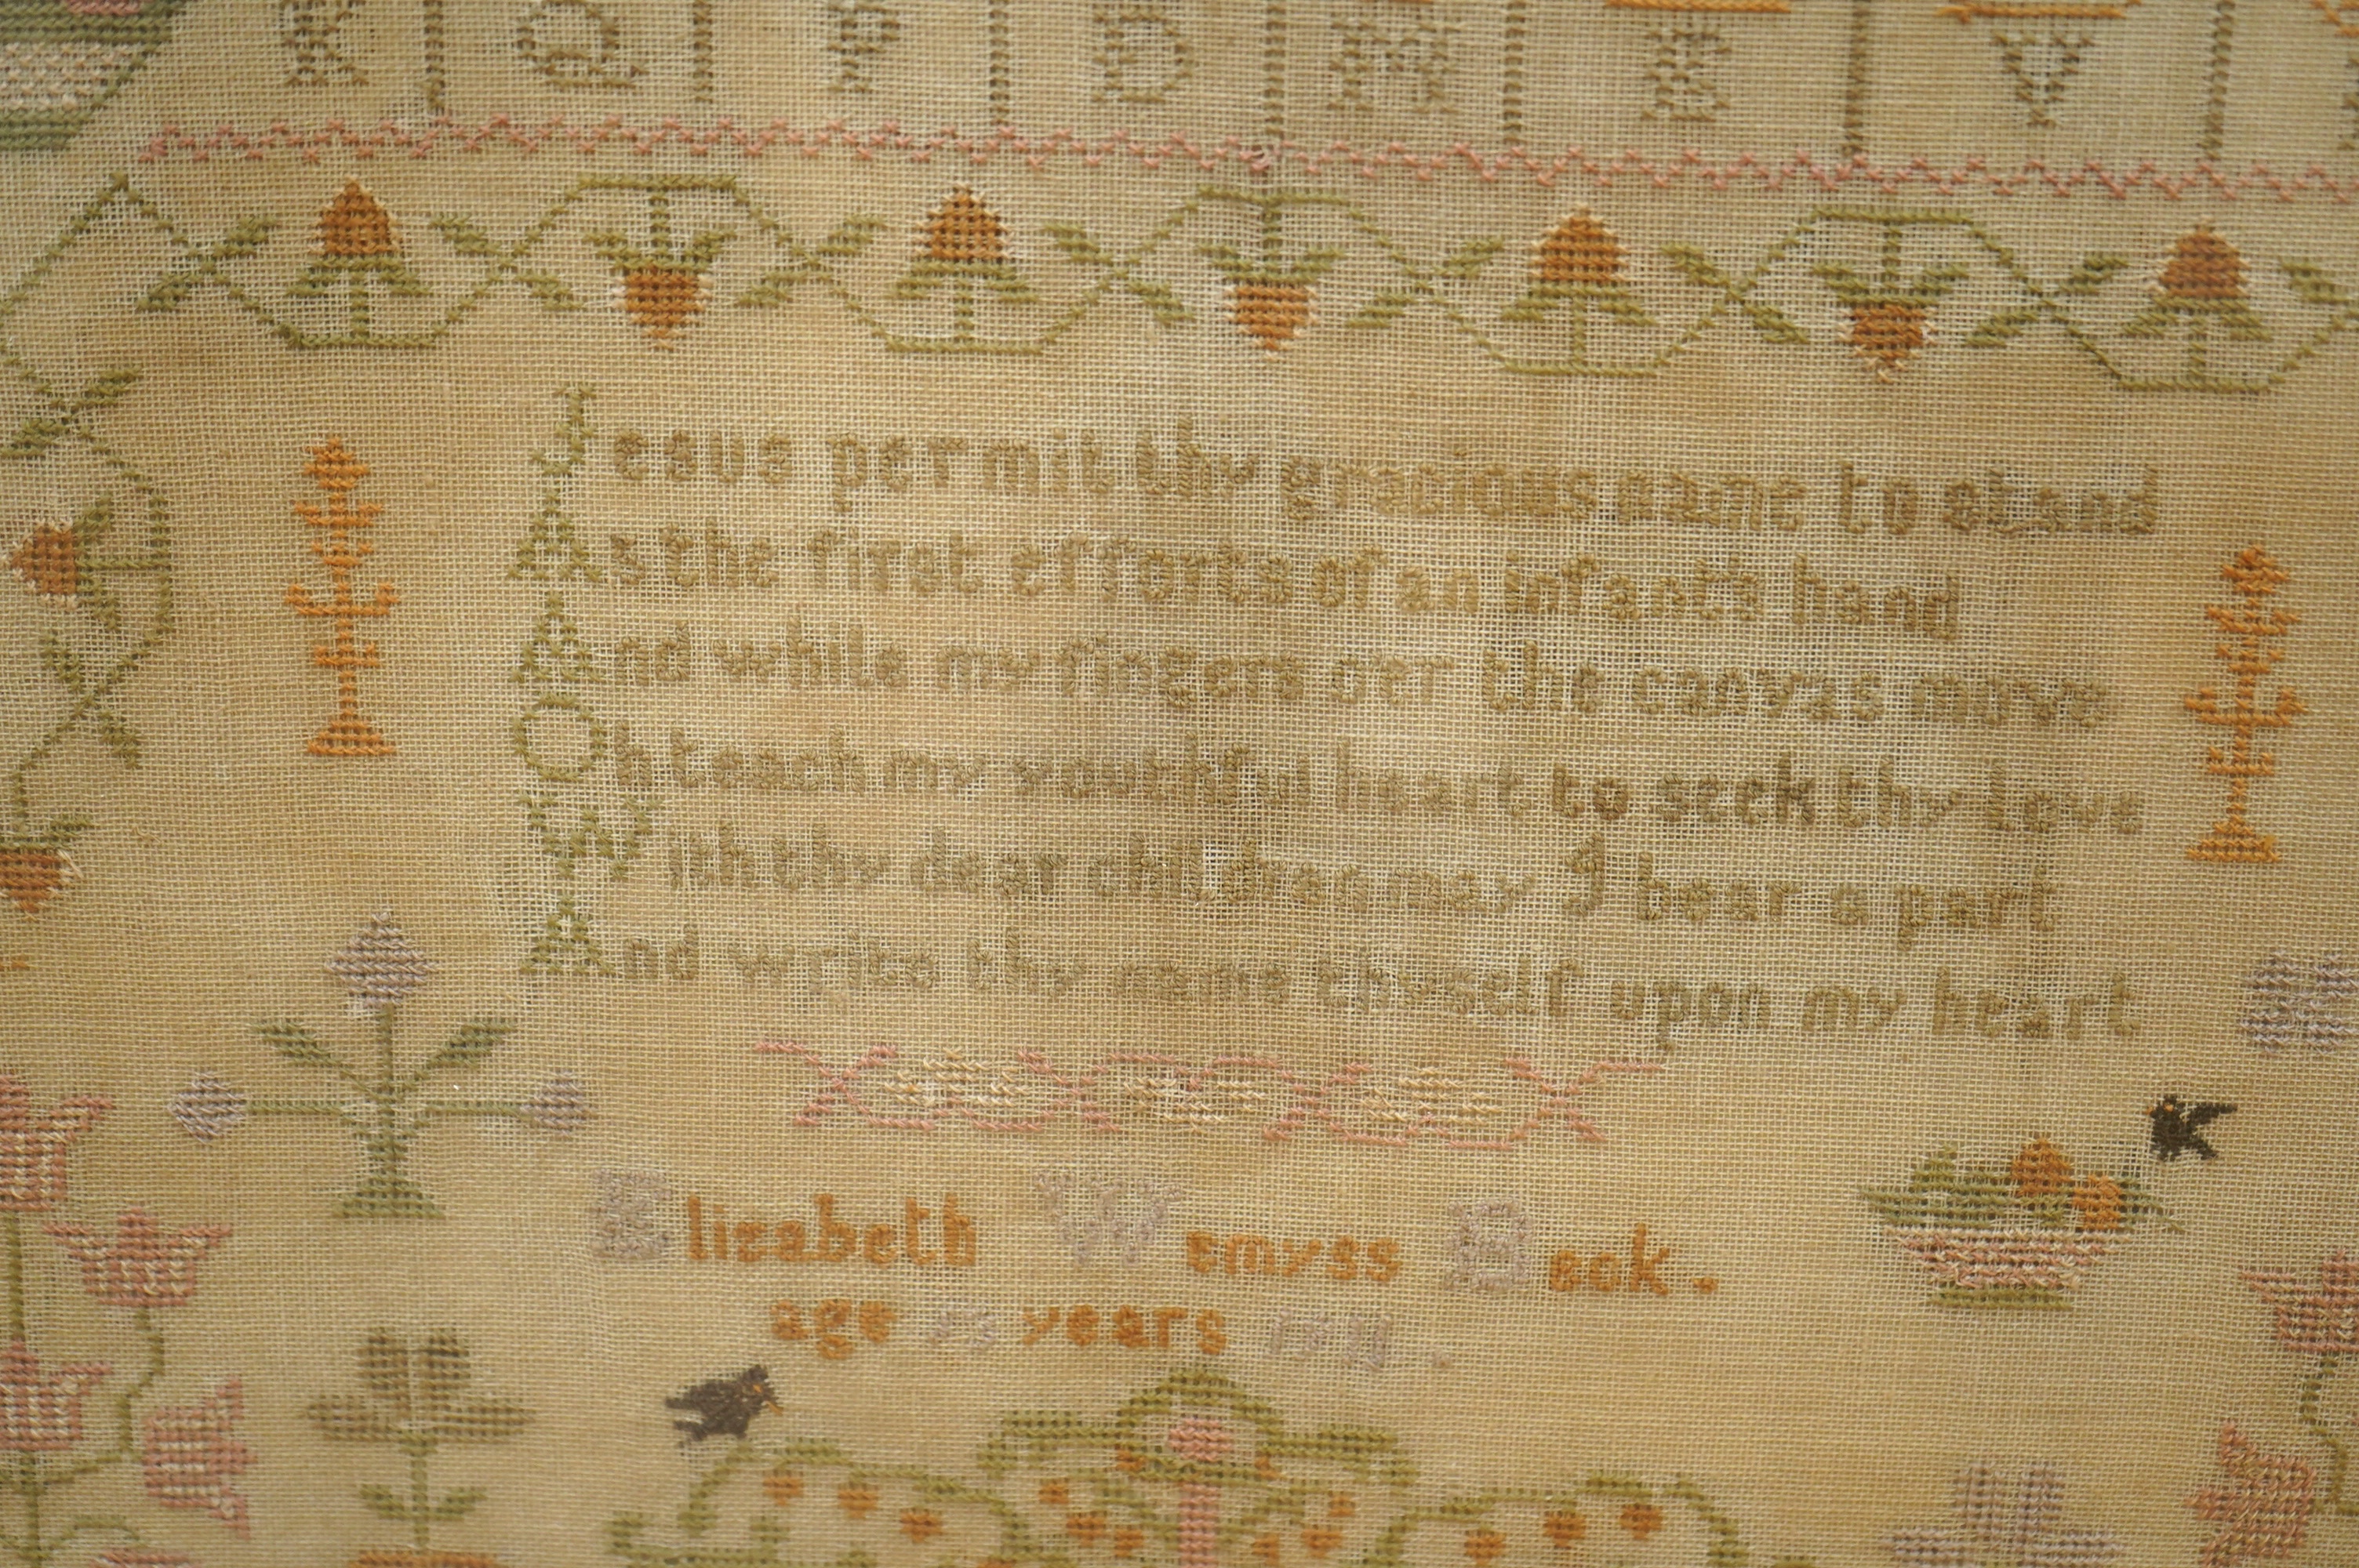 K Q P D M E V
Jesus permit thy gracious name to stand
As the first efforts of an Infant's hand
And while my fingers o'er the canvas move
Oh teach my youthful heart to seek thy love
With thy dear children may I bear a part
And write thy name thyself upon my heart
Elizabeth Wemyss Beck.
age years